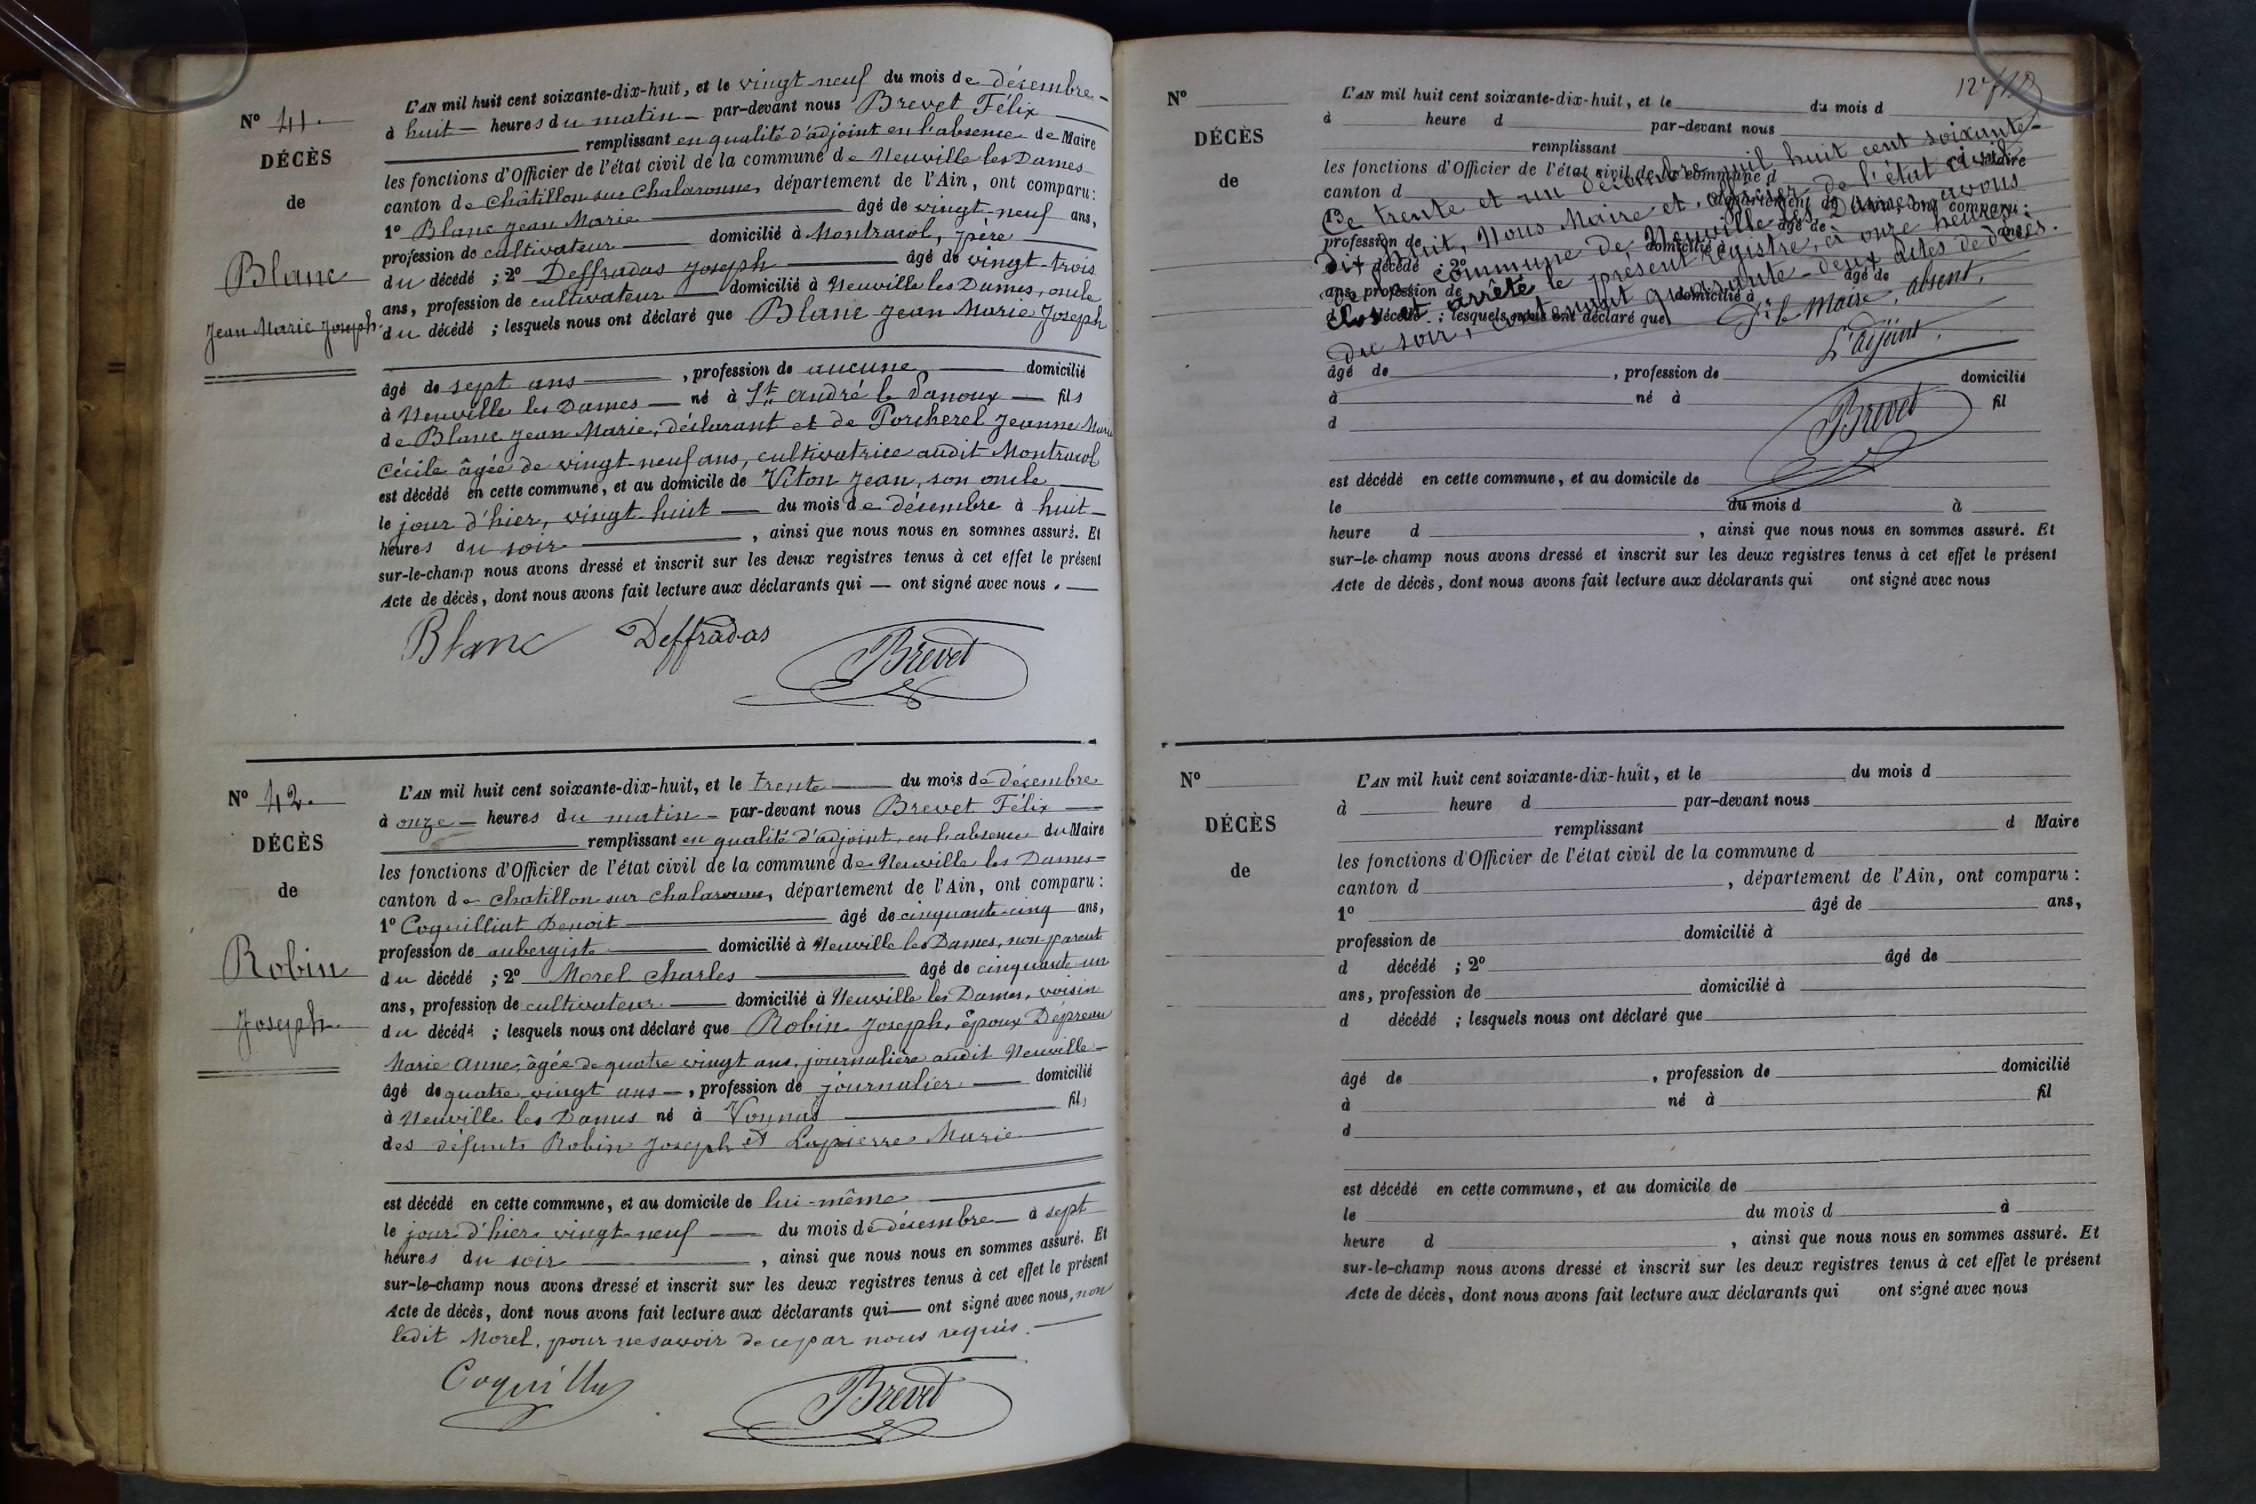 N° 41.
DÉCÈS
de
Blanc
Jean Marie Joseph
L'AN mil huit cent soixante-dix-huit, et le vingt-neuf du mois de décembre
à huit heures du matin par-devant nous Brevet Félix
remplissant en qualité d'adjoint en l'absence de Maire
les fonctions d'Officier de l'état civil de la commune de Neuville les Dames
canton de Châtillon sur Chalaronne, département de l'Ain, ont comparu :
1° Blanc Jean Marie âgé de vingt-neuf ans,
profession de cultivateur domicilié à Montracol, père
du décédé ; 2° Deffradas Joseph âgé de vingt-trois
ans, profession de cultivateur domicilié à Neuville les Dames, oncle
du décédé ; lesquels nous ont déclaré que Blanc Jean Marie Joseph
âgé de sept ans, profession de aucune domicilié
à Neuville les Dames né à St André le Panoux fils
de Blanc Jean Marie, déclarant et de Porcherel Jeanne Marie
Cécile âgée de vingt-neuf ans, cultivatrice audit Montracol
est décédé en cette commune, et au domicile de Viton Jean, son oncle
le jour d'hier, vingt-huit du mois de décembre à huit
heures du soir, ainsi que nous nous en sommes assuré. Et
sur-le-champ nous avons dressé et inscrit sur les deux registres tenus à cet effet le présent
Acte de décès, dont nous avons fait lecture aux déclarants qui — ont signé avec nous.
Blanc Deffradas Brevet
N° 42.
DÉCÈS
de
Robin
Joseph
L'AN mil huit cent soixante-dix-huit, et le trente du mois de décembre
à onze heures du matin par-devant nous Brevet Félix
remplissant en qualité d'adjoint, en l'absence du Maire
les fonctions d'Officier de l'état civil de la commune de Neuville les Dames
canton de Chatillon sur Chalaronne, département de l'Ain, ont comparu :
1° Coquilliat Benoit âgé de cinquante-cinq ans,
profession de aubergiste domicilié à Neuville les Dames, non parent
du décédé ; 2° Morel Charles âgé de cinquante un
ans, profession de cultivateur domicilié à Neuville les Dames, voisin
du décédé ; lesquels nous ont déclaré que Robin Joseph, époux
Marie Anne, âgée de quatre vingt ans, journalière audit Neuville
âgé de quatre vingt ans, profession de journalier domicilié
à Neuville les Dames né à Vonnas fils
des défunts Robin Joseph et Lapierre Marie
est décédé en cette commune, et au domicile de lui-même
le jour d'hier vingt-neuf du mois de décembre à sept
heures du soir, ainsi que nous nous en sommes assuré. Et
sur-le-champ nous avons dressé et inscrit sur les deux registres tenus à cet effet le présent
Acte de décès, dont nous avons fait lecture aux déclarants qui — ont signé avec nous, non
ledit Morel, pour ne savoir de ce par nous requis.
Brevet
N°
DÉCÈS
de
L'AN mil huit cent soixante-dix-huit, et le du mois d
à heure d par-devant nous
remplissant d Maire
les fonctions d'Officier de l'état civil de la commune d
canton d département de l'Ain, ont comparu :
1° âgé de ans,
profession de domicilié à
d décédé ; 2° âgé de
ans, profession de domicilié à
d décédé ; lesquels nous ont déclaré que
Ce trente et un décembre mil huit cent soixante-
dix huit, Nous Maire et officier de l'état civil
de la commune de Neuville les Dames avons
clos et arrêté le présent registre, à onze heures
du soir, contenant quarante-deux actes de décès.
Pr le Maire, absent,
L'adjoint.
Brevet
âgé de , profession de domicilié
à né à fil
d
est décédé en cette commune, et au domicile de
le du mois d à
heure d , ainsi que nous nous en sommes assuré. Et
sur-le-champ nous avons dressé et inscrit sur les deux registres tenus à cet effet le présent
Acte de décès, dont nous avons fait lecture aux déclarants qui ont signé avec nous
N°
DÉCÈS
de
L'AN mil huit cent soixante-dix-huit, et le du mois d
à heure d par-devant nous
remplissant d Maire
les fonctions d'Officier de l'état civil de la commune d
canton d , département de l'Ain, ont comparu :
1° âgé de ans,
profession de domicilié à
d décédé ; 2° âgé de
ans, profession de domicilié à
d décédé ; lesquels nous ont déclaré que
âgé de , profession de domicilié
à né à fil
d
est décédé en cette commune, et au domicile de
le du mois d à
heure d , ainsi que nous nous en sommes assuré. Et
sur-le-champ nous avons dressé et inscrit sur les deux registres tenus à cet effet le présent
Acte de décès, dont nous avons fait lecture aux déclarants qui ont signé avec nous